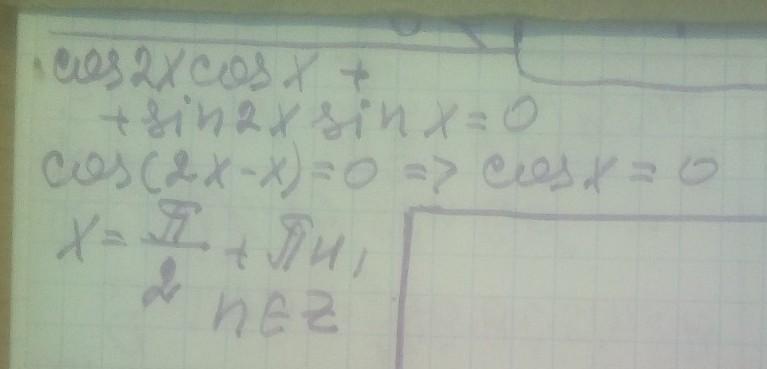 cos2x cosx +
+ sin2x sinx = 0
cos(2x-x)=0 => cosx = 0
x = π/2 + πn,
n∈Z